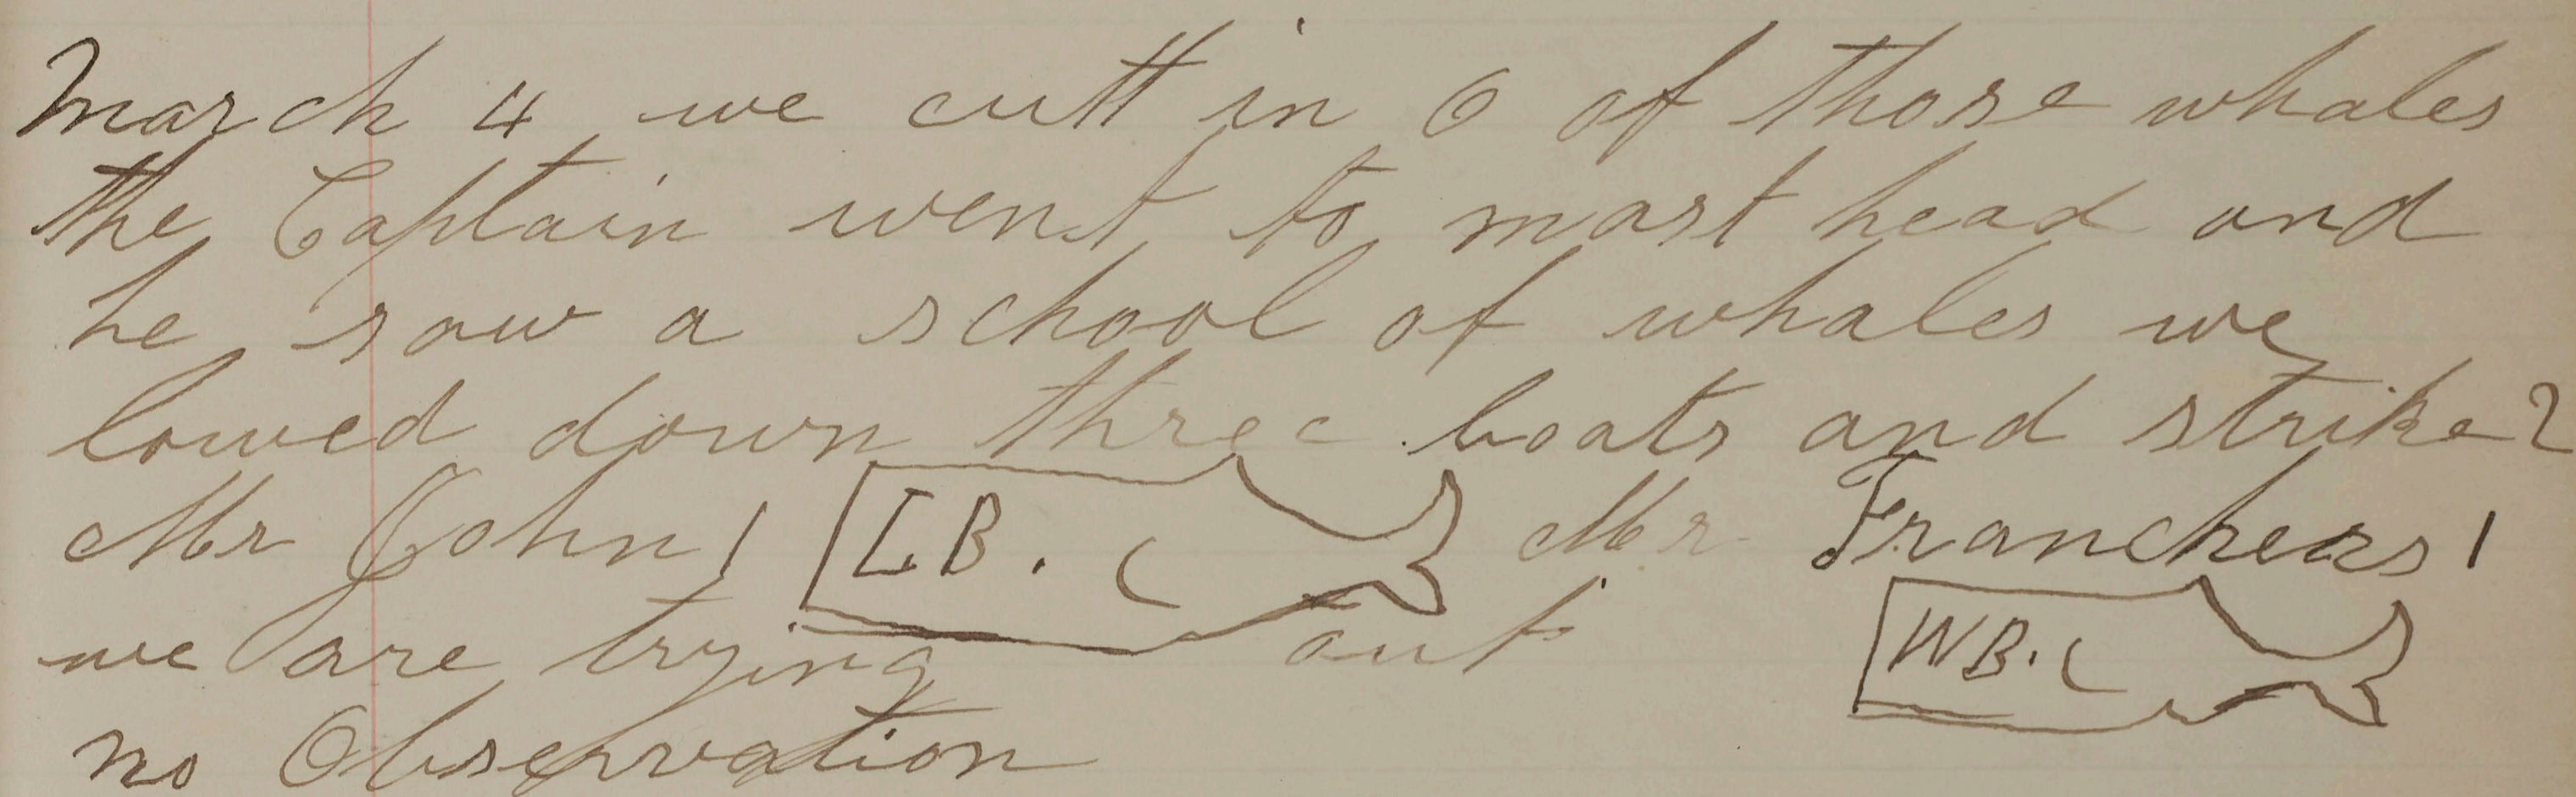 March 4 we cutt in 6 of those whales
the Captain went to mast head and
he saw a school of whales we
lowed down three boats and strike 2
Mr John 1 LB. Mr Francheas 1
we are trying out WB.
no Observation